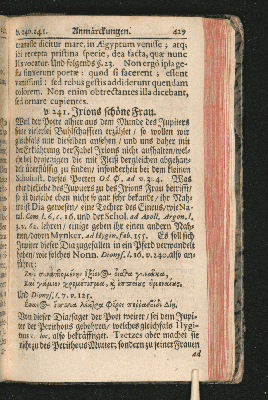 v. 240. 241. Anmärckungen. 429
transisse dicitur mare, in Ægyptum venisse; atq;
ibi recepta pristina specie, dea facta, quæ nunc
Isis vocatur. Und folgends §. 23. Non ergo ipsa ge-
sta finxerunt poetæ: quod si facerent; essent
vanissimi: sed rebus gestis addiderunt quendam
colorem. Non enim obtrectantes illa dicebant,
sed ornare cupientes.
v 241. Irions schöne Frau.
Weil der Poete alhier aus dem Munde des Jupiters
seine vielerley Buhlschafften erzählet / so wollen wir
gleichfals nur dieselben ansehen / und uns daher mit
der Erklärung der Fabel Irions nicht aufhalten / wel-
che bei denenjenigen die mit Fleiß dergleichen abgehan-
delt überflüßig zu finden / insonderheit bey dem kleinen
Scholiast. dieses Poeten Od. Φ. ad v. 304. Was
die dieliebe des Jupiters zu des Irions Frau betrifft/
so ist dieselbe eben nicht so gar sehr bekandt / ihr Nah-
me ist Dia gewesen / eine Tochter des Eineus, wie Na-
tal. Com. l. 6. c. 16. und der Schol. ad Apoll. Argon. l.
3. v. 62. lehren / einige geben ihr einen andern Nah-
men / davon Mynker. ad Hygin. fab. 155. Es soll sich
Jupiter dieser Dia zugefallen in ein Pferd verwandelt
haben / wie solches Nonn. Dionys. l. 16. v. 240. also an-
führet:
Und Dionys. l. 7. v. 125.
Von dieser Dia / saget der Poet weiter / sei dem Jupi-
ter der Perithous gebohren / welches gleichfals Hygi-
nus c. loc. also bekräfftiget. Tzetzes aber machet sie
nicht zu des Perithous Mutter / sondern zu seiner Frauen
ad